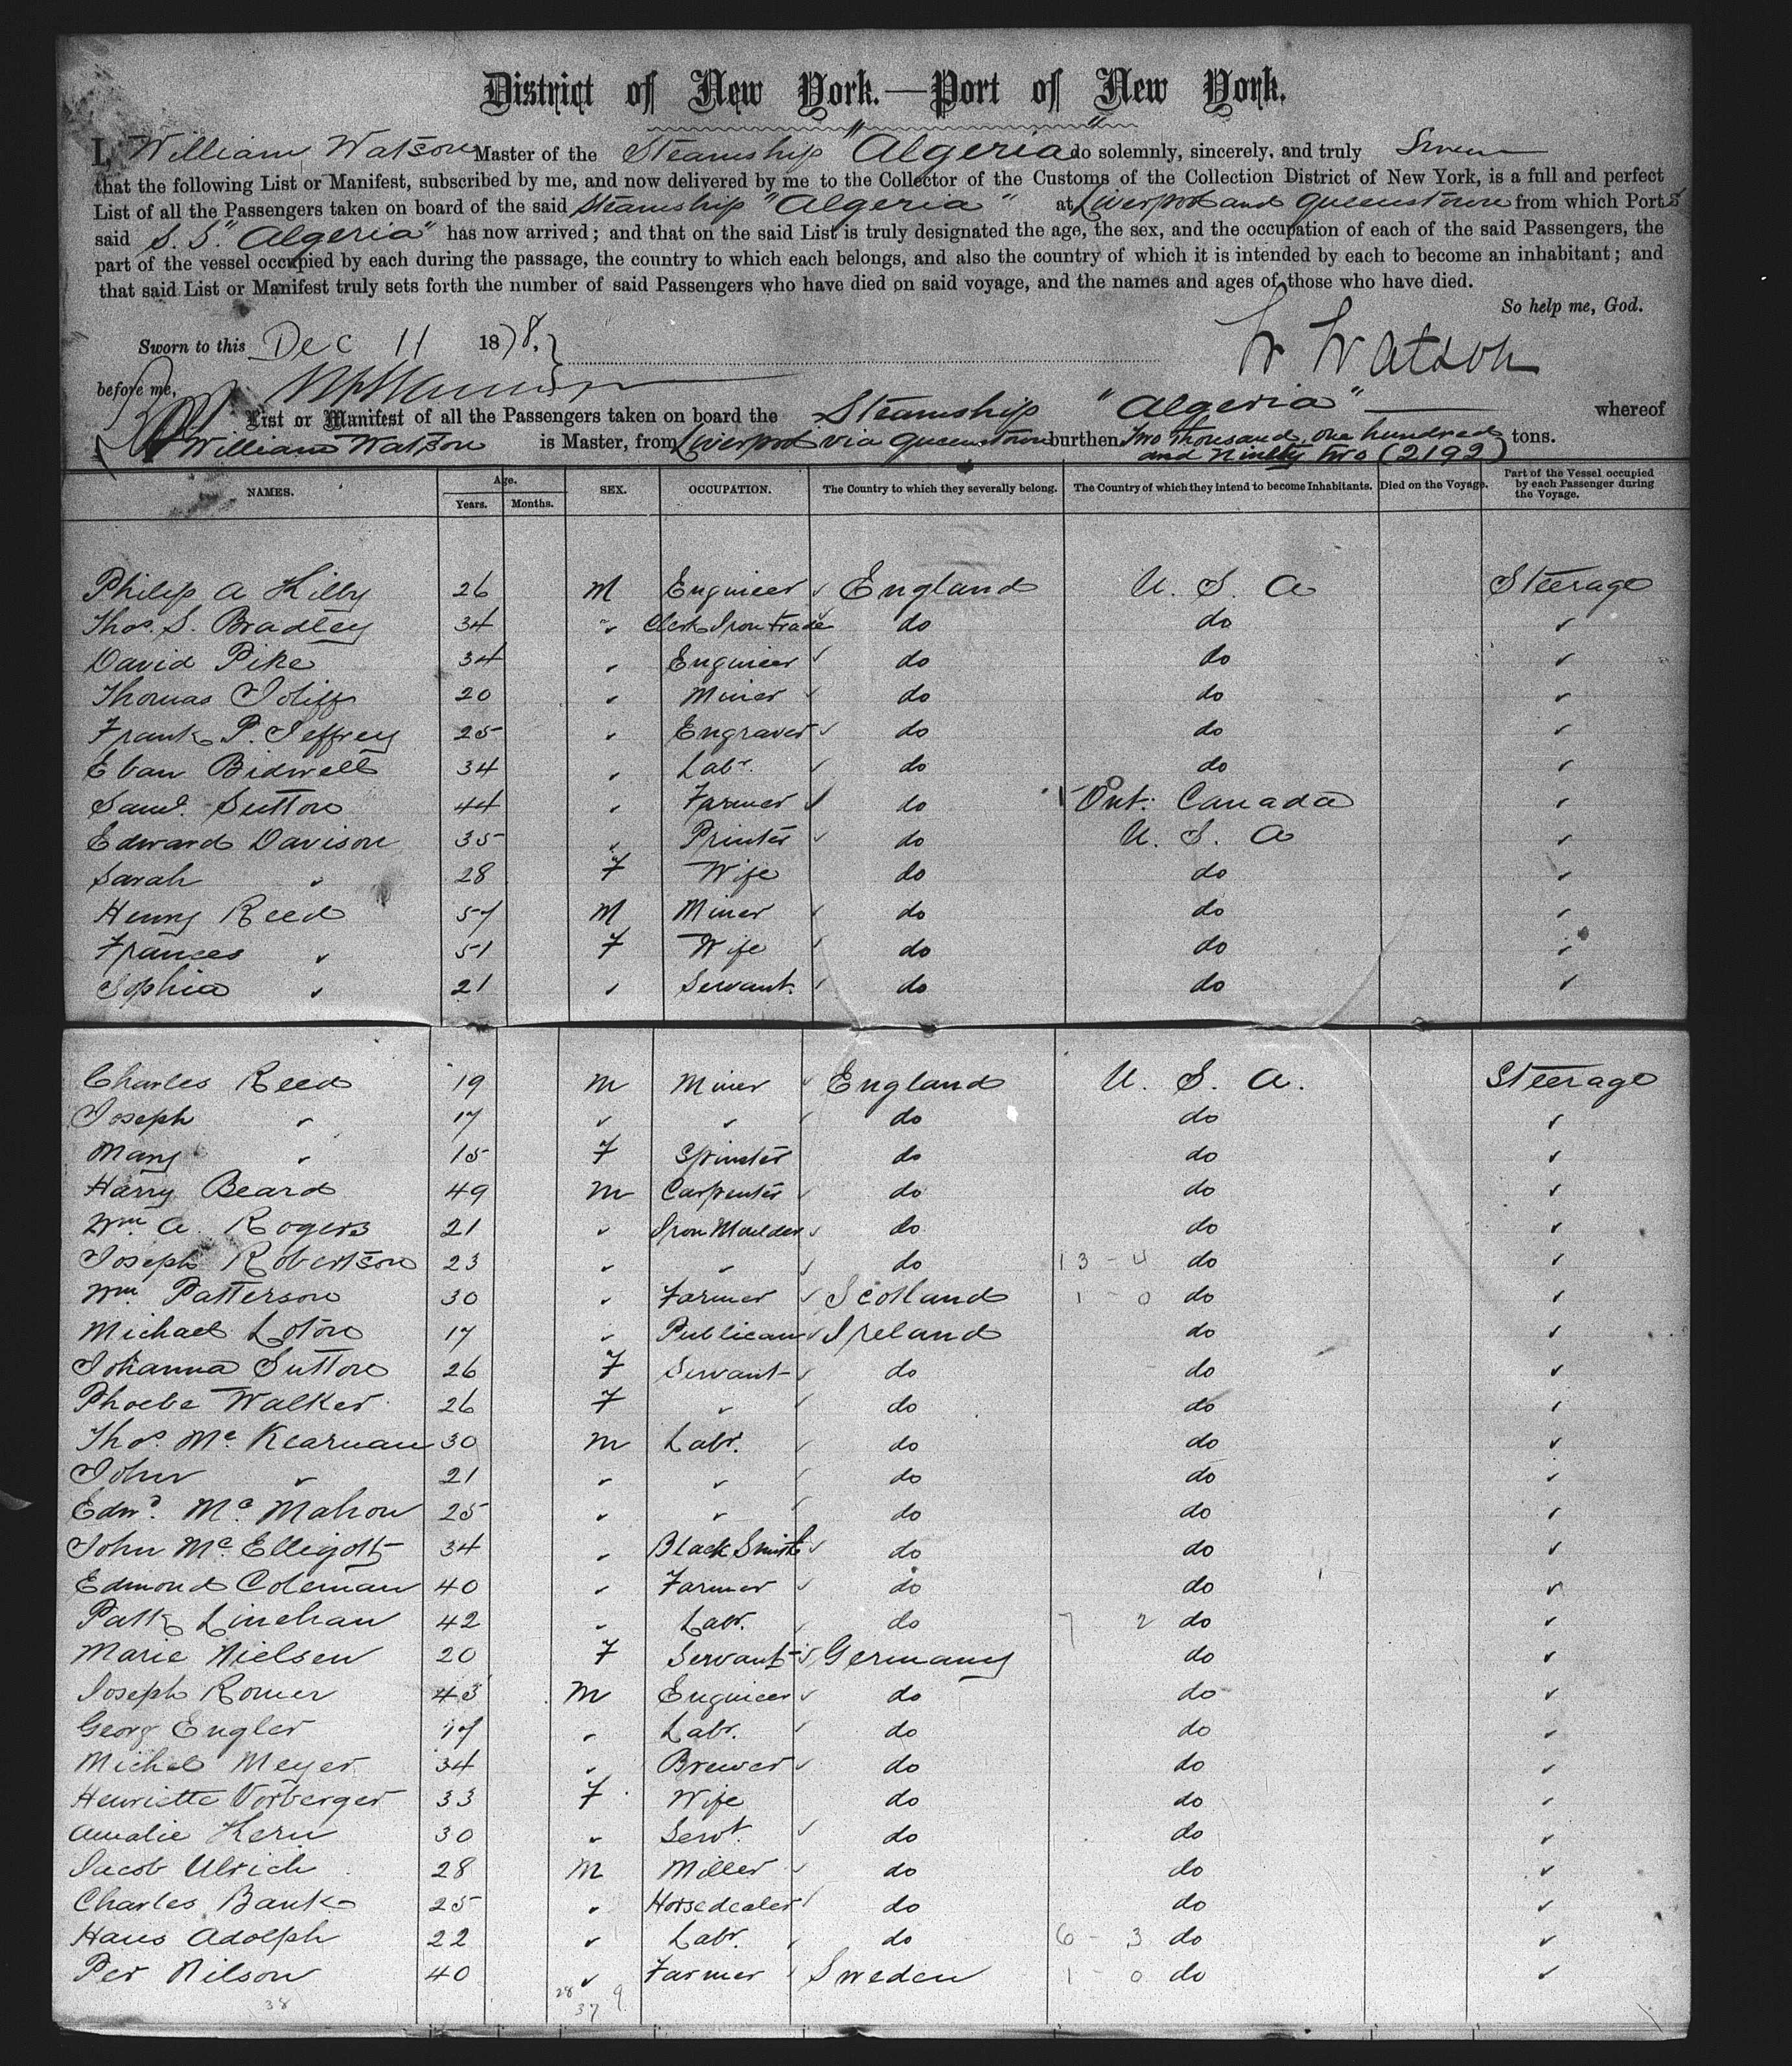 District of New York.—Port of New York.
I, William Watson Master of the Steamship "Algeria" do solemnly, sincerely, and truly Swear
that the following List or Manifest, subscribed by me, and now delivered by me to the Collector of the Customs of the Collection District of New York, is a full and perfect
List of all the Passengers taken on board of the said Steamship "Algeria" at Liverpool and Queenstown from which Ports
said S. S. "Algeria" has now arrived; and that on the said List is truly designated the age, the sex, and the occupation of each of the said Passengers, the
part of the vessel occupied by each during the passage, the country to which each belongs, and also the country of which it is intended by each to become an inhabitant; and
that said List or Manifest truly sets forth the number of said Passengers who have died on said voyage, and the names and ages of those who have died.
So help me, God.
Sworn to this Dec 11 1878,
W Watson
before me,
List or Manifest of all the Passengers taken on board the Steamship "Algeria" whereof
William Watson is Master, from Liverpool via Queenstown burthen Two thousand, one hundred and Ninety two (2192) tons.
NAMES. Age. Years. Months. SEX. OCCUPATION. The Country to which they severally belong. The Country of which they intend to become Inhabitants. Died on the Voyage. Part of the Vessel occupied by each Passenger during the Voyage.
Philip A Hilby 26 M Engineer England U. S. A Steerage
Thos. S. Bradley 34 " Clerk Iron trade do do "
David Pike 34 " Engineer do do "
Thomas Joliff 20 " Miner do do "
Frank P. Jeffrey 25 " Engraver do do "
Eban Bidwell 34 " Labr. do do "
Saml. Sutton 44 " Farmer do Ont. Canada "
Edward Davison 35 " Printer do U. S. A "
Sarah " 28 F Wife do do "
Henry Reed 57 M Miner do do "
Frances " 51 F Wife do do "
Sophia " 21 " Servant. do do "
Charles Reed 19 M Miner England U. S. A. Steerage
Joseph " 17 " " do do "
Mary " 15 F Spinster do do "
Harry Beard 49 M Carpenter do do "
Wm A. Rogers 21 " Iron Moulder do do "
Joseph Robertson 23 " " do 13 - 4 do "
Wm Patterson 30 " Farmer Scotland 1 - 0 do "
Michael Loton 17 " Publican Ireland do "
Johanna Sutton 26 F Servant do do "
Phoebe Walker 26 F " do do "
Thos. Mc. Kearnan 30 M Labr. do do "
John " 21 " " do do "
Edwd. Mc. Mahon 25 " " do do "
John Mc. Elligott 34 " Black Smith do do "
Edmond Coleman 40 " Farmer do do "
Patk Linehan 42 " Labr. do 7 2 do "
Marie Nielsen 20 F Servant Germany do "
Joseph Romer 43 M Engineer do do "
Georg Engler 17 " Labr. do do "
Michel Meyer 34 " Brewer do do "
Henriette Vorberger 33 F Wife do do "
Amalie Kern 30 " Servt. do do "
Jacob Ulrich 28 M Miller do do "
Charles Bank 25 " Horsedealer do do "
Hans Adolph 22 " Labr. do 6 - 3 do "
Per Nilson 40 " Farmer Sweden 1 - 0 do "
38 28 9
37